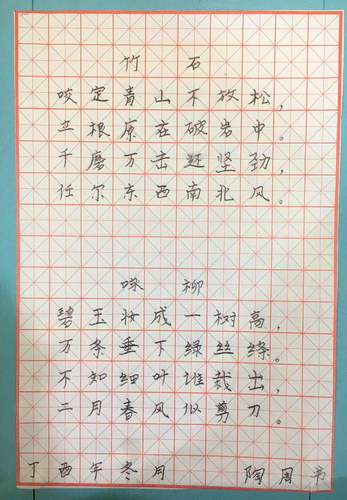 竹石
咬定青山不放松，
立根原在破岩中。
千磨万击还坚劲，
任尔东西南北风。
咏柳
碧玉妆成一树高，
万条垂下绿丝绦。
不知细叶谁裁出，
二月春风似剪刀。
丁酉年冬月 陶周书